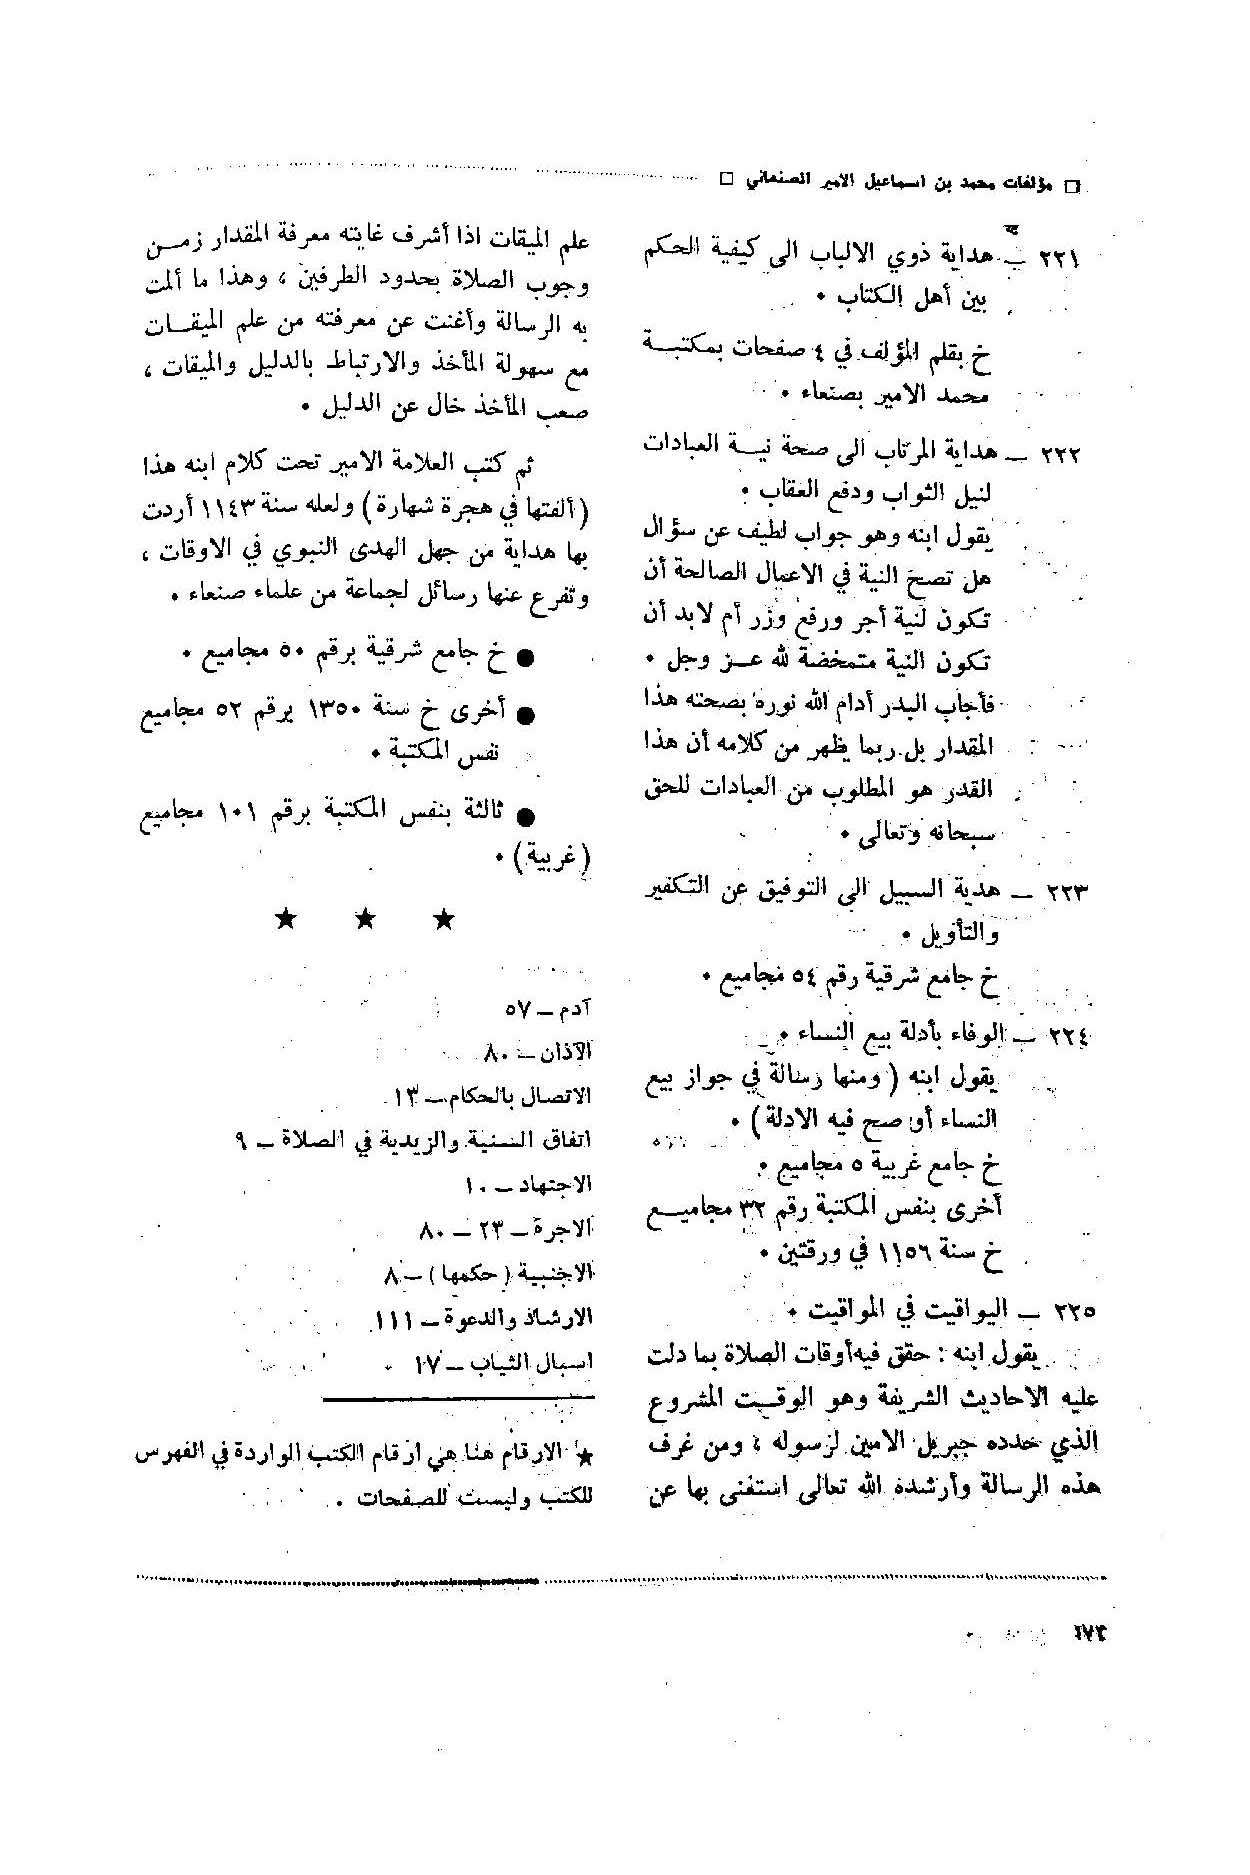 □ مؤلفات محمد بن اسماعيل الامير الصنعاني □
٢٢١ – هداية ذوي الالباب الى كيفية الحكم
بين أهل الكتاب ٠
خ بقلم المؤلف في ٤ صفحات بمكتبـة
محمد الامير بصنعاء ٠
٢٢٢ – هداية المرتاب الى صحة نيـة العبادات
لنيل الثواب ودفع العقاب ٠
يقول ابنه وهو جواب لطيف عن سؤال
هل تصح النية في الاعمال الصالحة أن
تكون لنية أجر ورفع وزر أم لابد أن
تكون النية متمخضة لله عـز وجل ٠
فأجاب البدر أدام الله نوره بصحته هذا
المقدار بل ربما يظهر من كلامه أن هذا
القدر هو المطلوب من العبادات للحق
سبحانه وتعالى ٠
٢٢٣ – هدية السبيل الى التوفيق عن التكفير
والتأويل ٠
خ جامع شرقية رقم ٥٤ مجاميع ٠
٢٢٤ – الوفاء بأدلة بيع النساء ٠
يقول ابنه ( ومنها رسالة في جواز بيع
النساء أو صح فيه الادلة ) ٠
خ جامع غربية ٥ مجاميع ٠
أخرى بنفس المكتبة رقم ٣٢ مجاميـع
خ سنة ١١٥٦ في ورقتين ٠
٢٢٥ – اليواقيت في المواقيت ٠
يقول ابنه : حقق فيه أوقات الصلاة بما دلت
عليه الاحاديث الشريفة وهو الوقـت المشروع
الذي حدده جبريل الامين لرسوله ، ومن عرف
هذه الرسالة وأرشده الله تعالى استغنى بها عن
علم الميقات اذا أشرف غايته معرفة المقدار زمـن
وجوب الصلاة بحدود الطرفين ، وهذا ما ألمت
به الرسالة وأغنت عن معرفته من علم الميقـات
مع سهولة المأخذ والارتباط بالدليل والميقات ،
صعب المأخذ خال عن الدليل ٠
ثم كتب العلامة الامير تحت كلام ابنه هذا
(ألفتها في هجرة شهارة) ولعله سنة ١١٤٣ أردت
بها هداية من جهل الهدى النبوي في الاوقات ،
وتفرع عنها رسائل لجماعة من علماء صنعاء ٠
● خ جامع شرقية برقم ٥٠ مجاميع ٠
● أخرى خ سنة ١٣٥٠ برقم ٥٢ مجاميع
نفس المكتبة ٠
● ثالثة بنفس المكتبة برقم ١٠١ مجاميع
(غربية) ٠
★ ★ ★
آدم – ٥٧
الآذان – ٨٠
الاتصال بالحكام – ١٣
اتفاق السنية والزيدية في الصلاة – ٩
الاجتهاد – ١٠
الاجرة – ٢٣ – ٨٠
الاجنبية (حكمها) – ٨
الارشاد والدعوة – ١١١
اسبال الثياب – ١٧
★ الارقام هنا هي ارقام الكتب الواردة في الفهرس
للكتب وليست للصفحات ٠
١٧٢